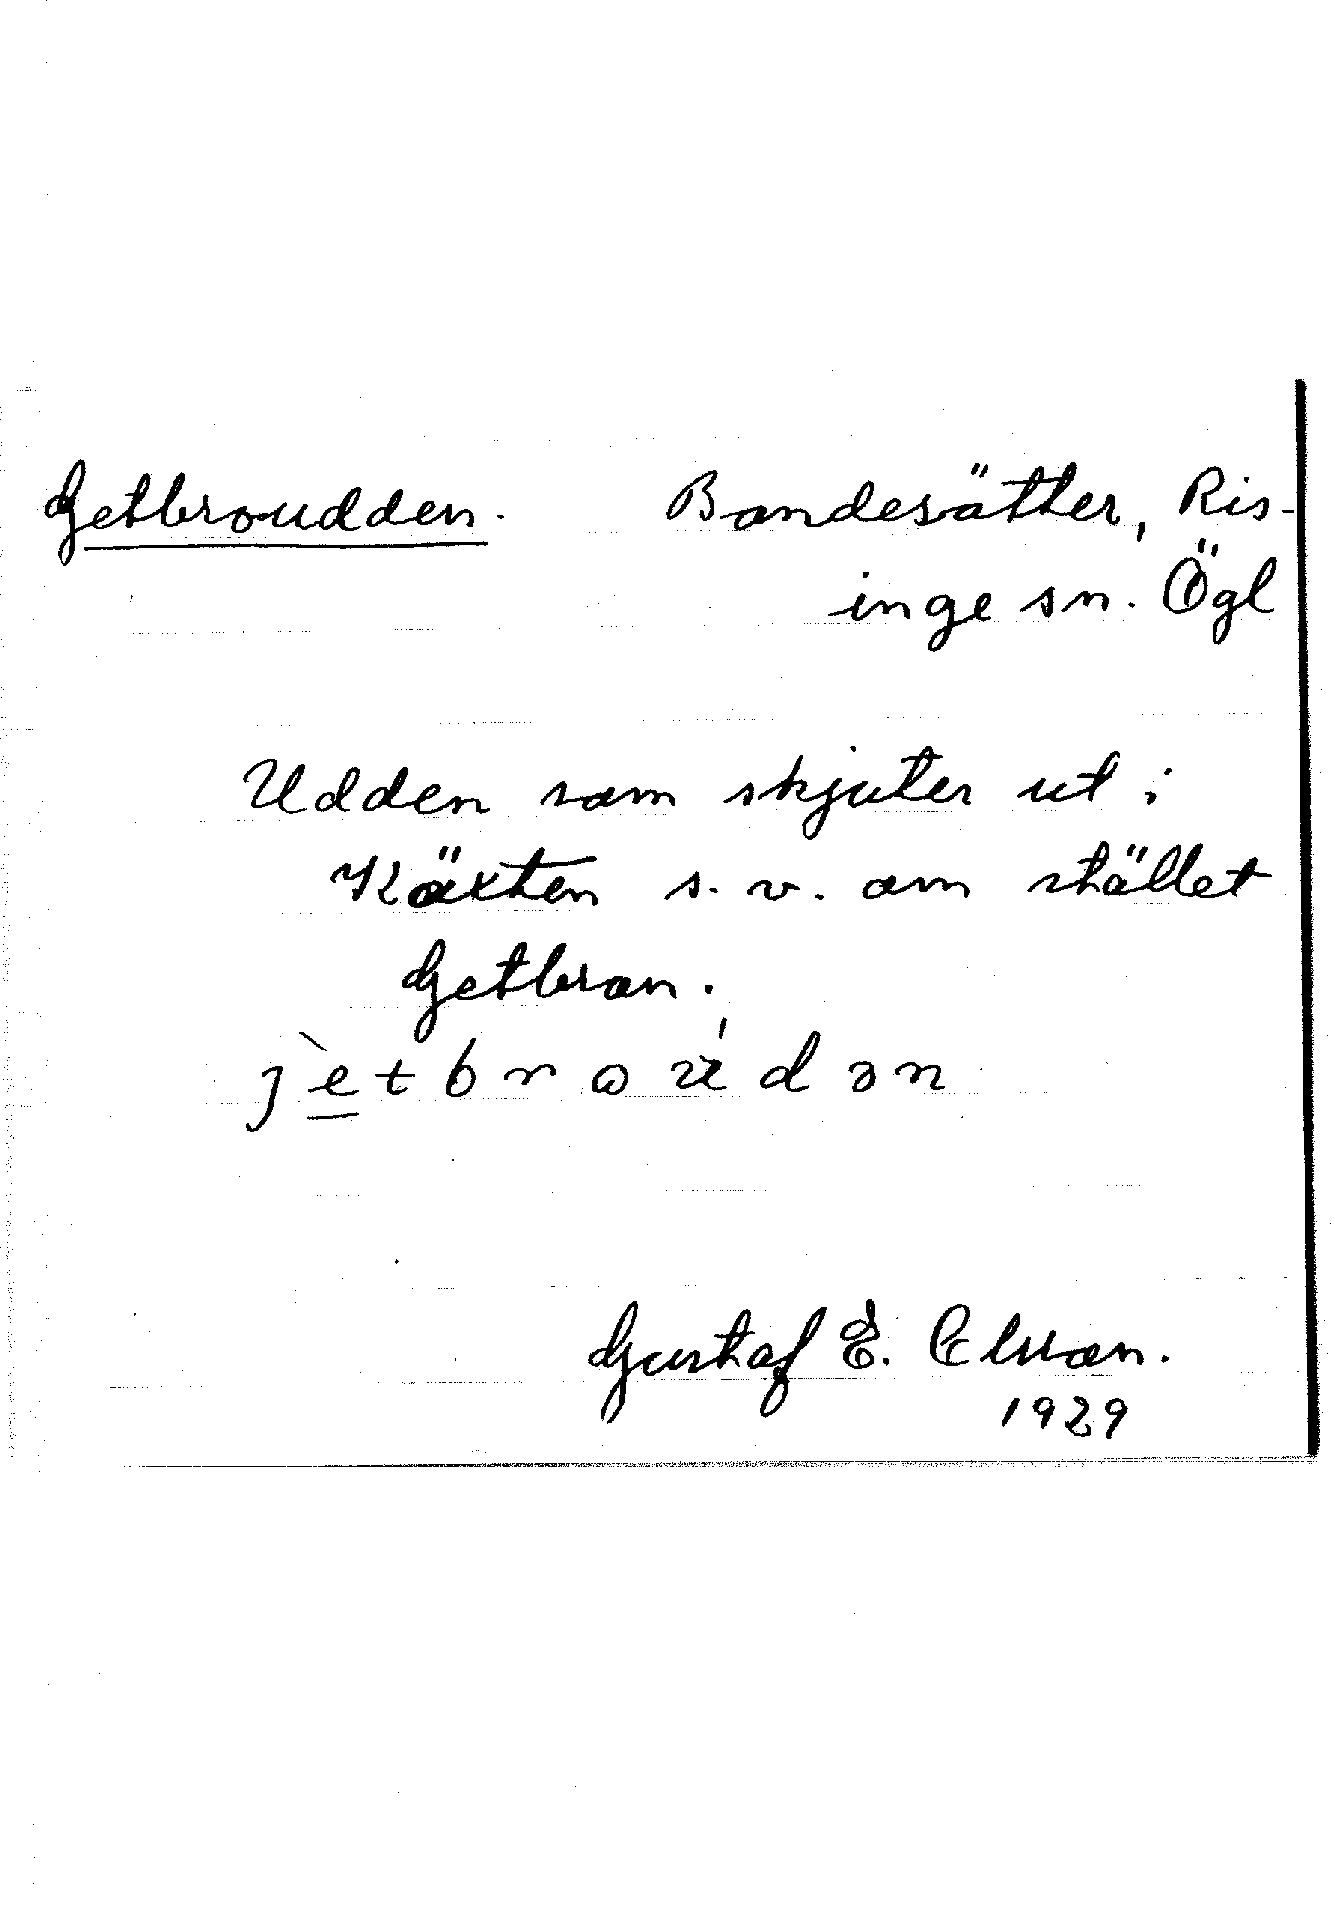 Getbroudden. Bondesätter, Ris-
inge sn. Ögl
Udden som skjuter ut i
Käxten s. v. om stället
Getbron.
jètbroúdən
Gustaf E.
1929